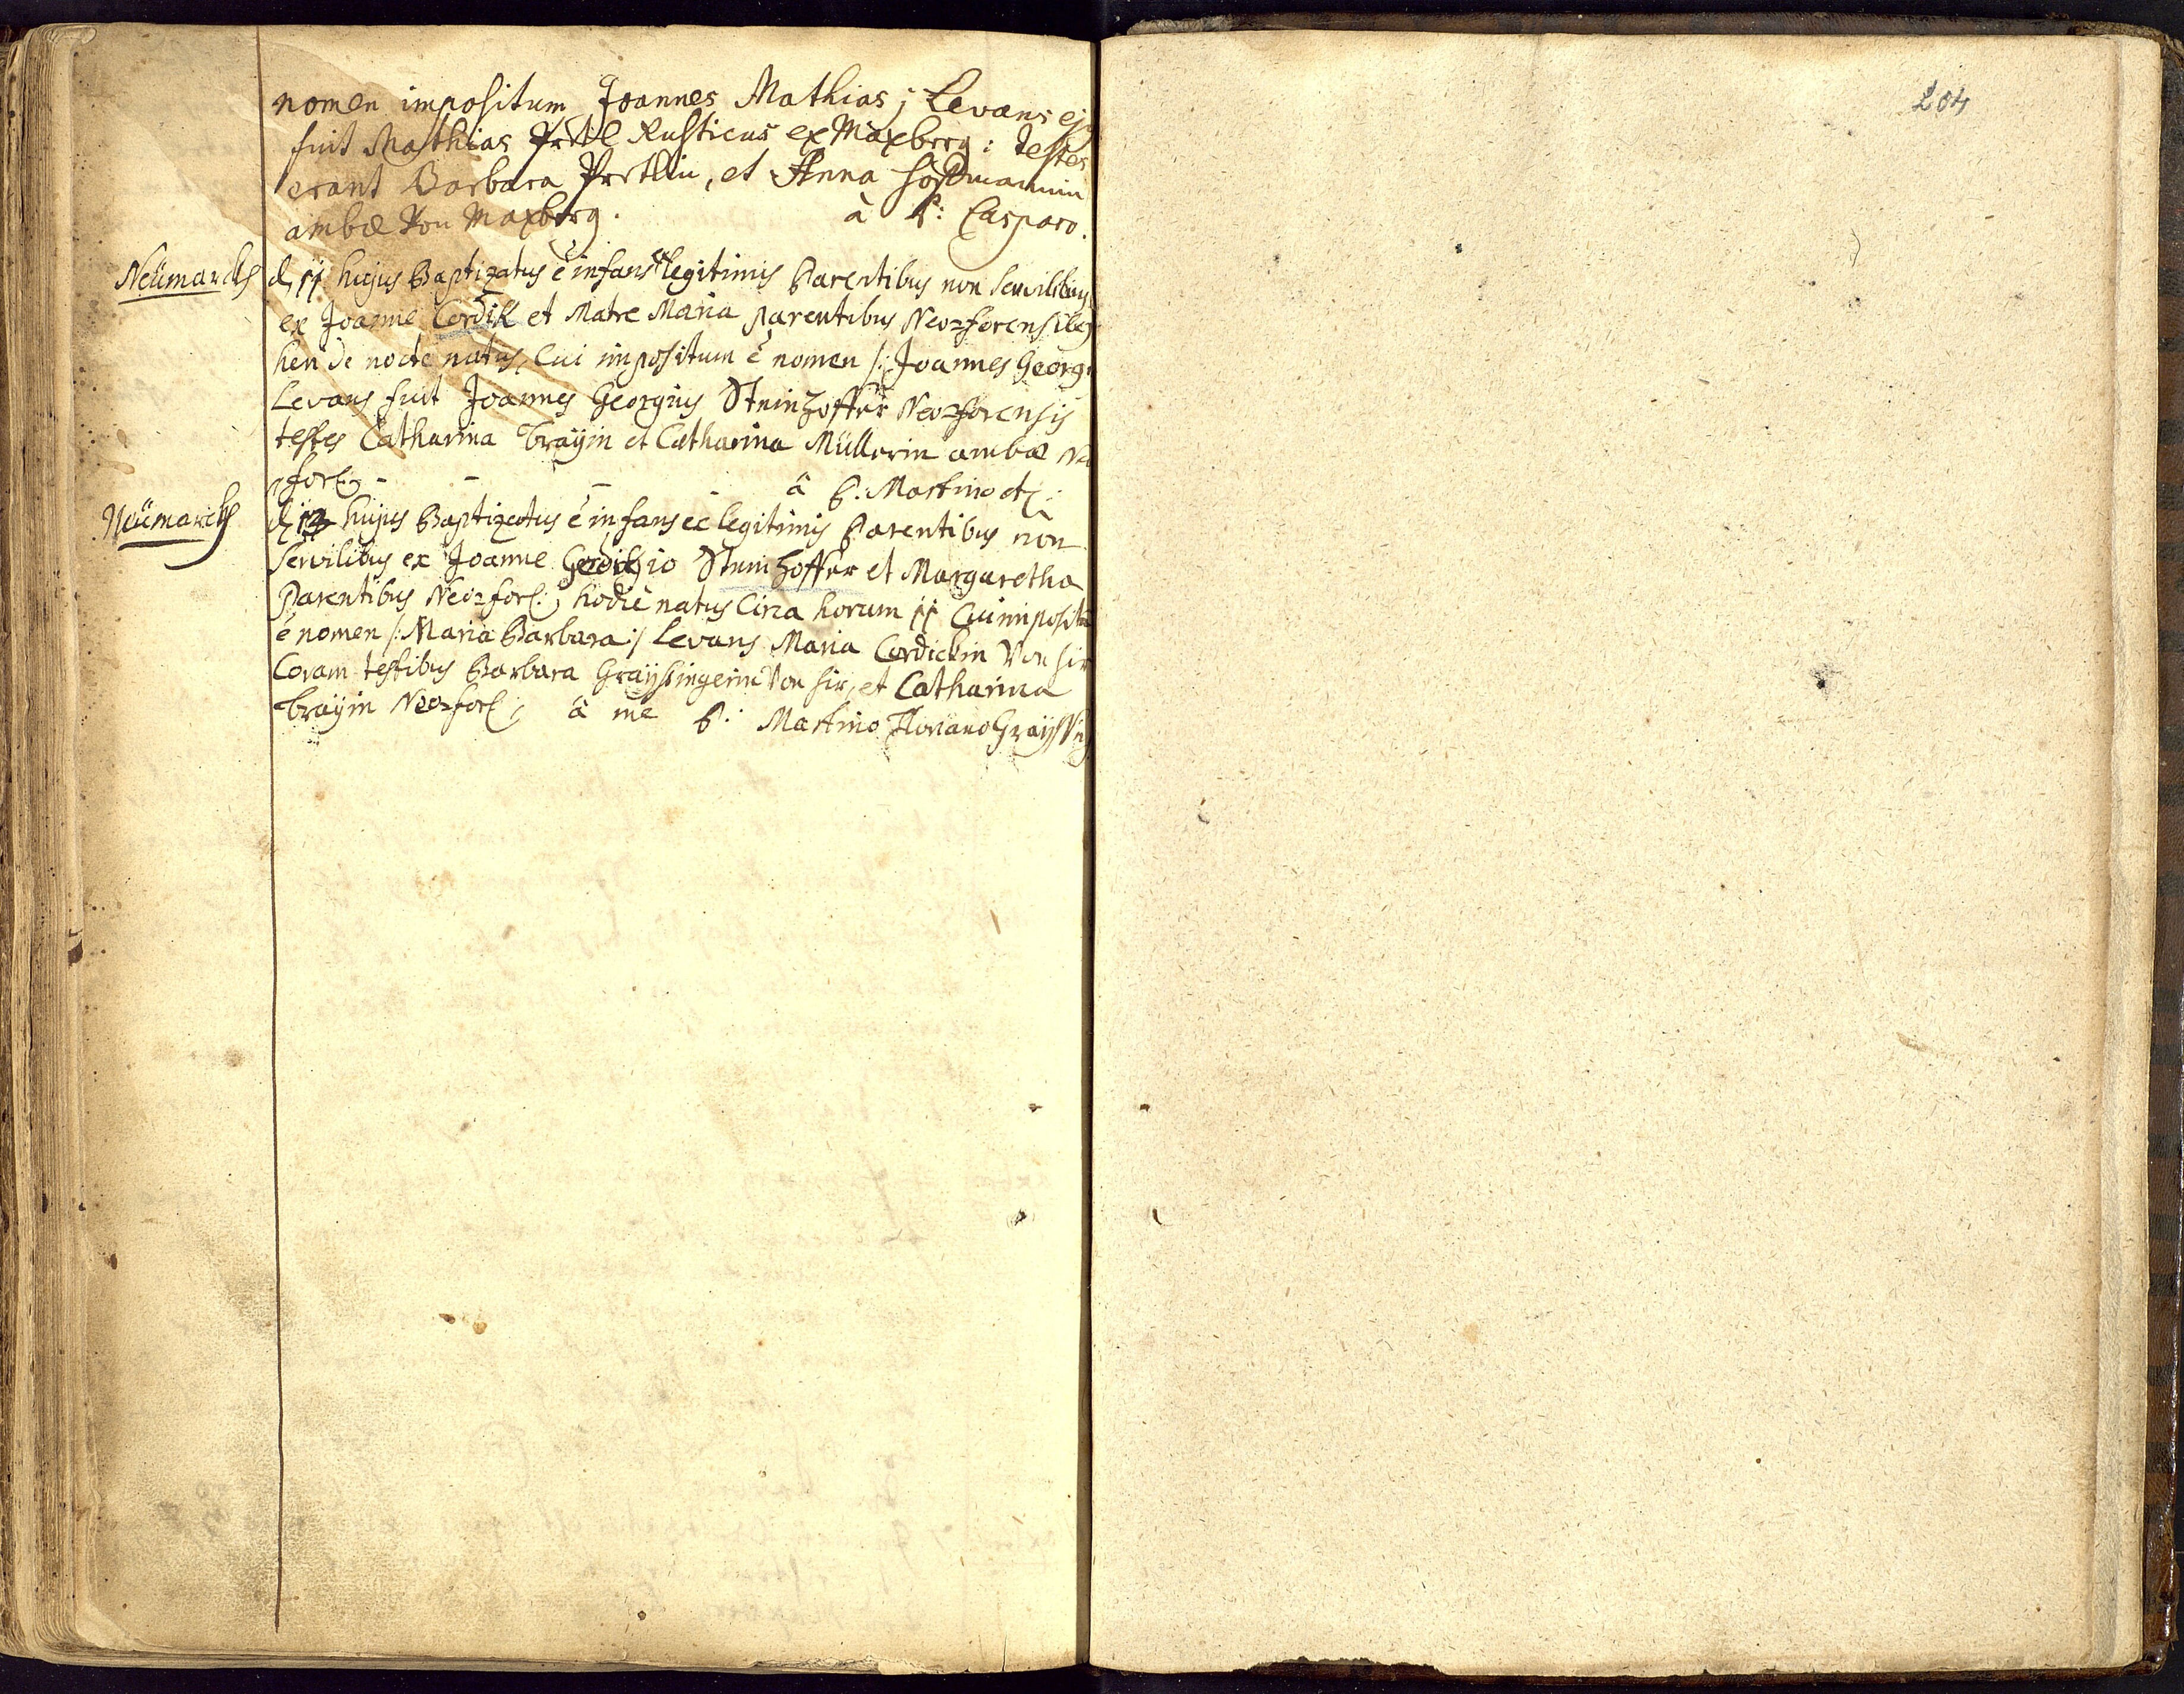 204
nomen impositum Joannes Mathias; Levans ej
fuit Mathias Prtl Rusticus ex Maxberg: Testes
erant Barbara Prtlin, et Anna
ambæ Von Maxberg. à P: Casparo.
Neümarckh
d 11 hujus Baptizatus ê infans ex legitimis Parentibus non servilibus
ex Joanne Cordik et Matre Maria parentibus Neo=forensibus
de nocte natus, Cui impositum ê nomen /: Joannes Georgi
Levans fuit Joannes Georgius Steinhoffer Neo=forensis
testes Catharina Brayin et Catharina Müllerin ambæ Ne
oforę - - - - â P: Martino etc:
Neümarckh
d 12 hujus Baptizatus ê infans ex legitimis Parentibus non
Servilibus ex Joanne Georgio Steinhoffer et Margaretha
Parentibus Neo=for: hodie natus Circa horam 11 Cui imposit
ê nomen /: Maria Barbara :/ Levans Maria Cordickin Von hir
Coram testibus Barbara Graÿsingerin Von hir, et Catharina
Brayin Neo=for: â me P: Martino Floriano Graÿsing